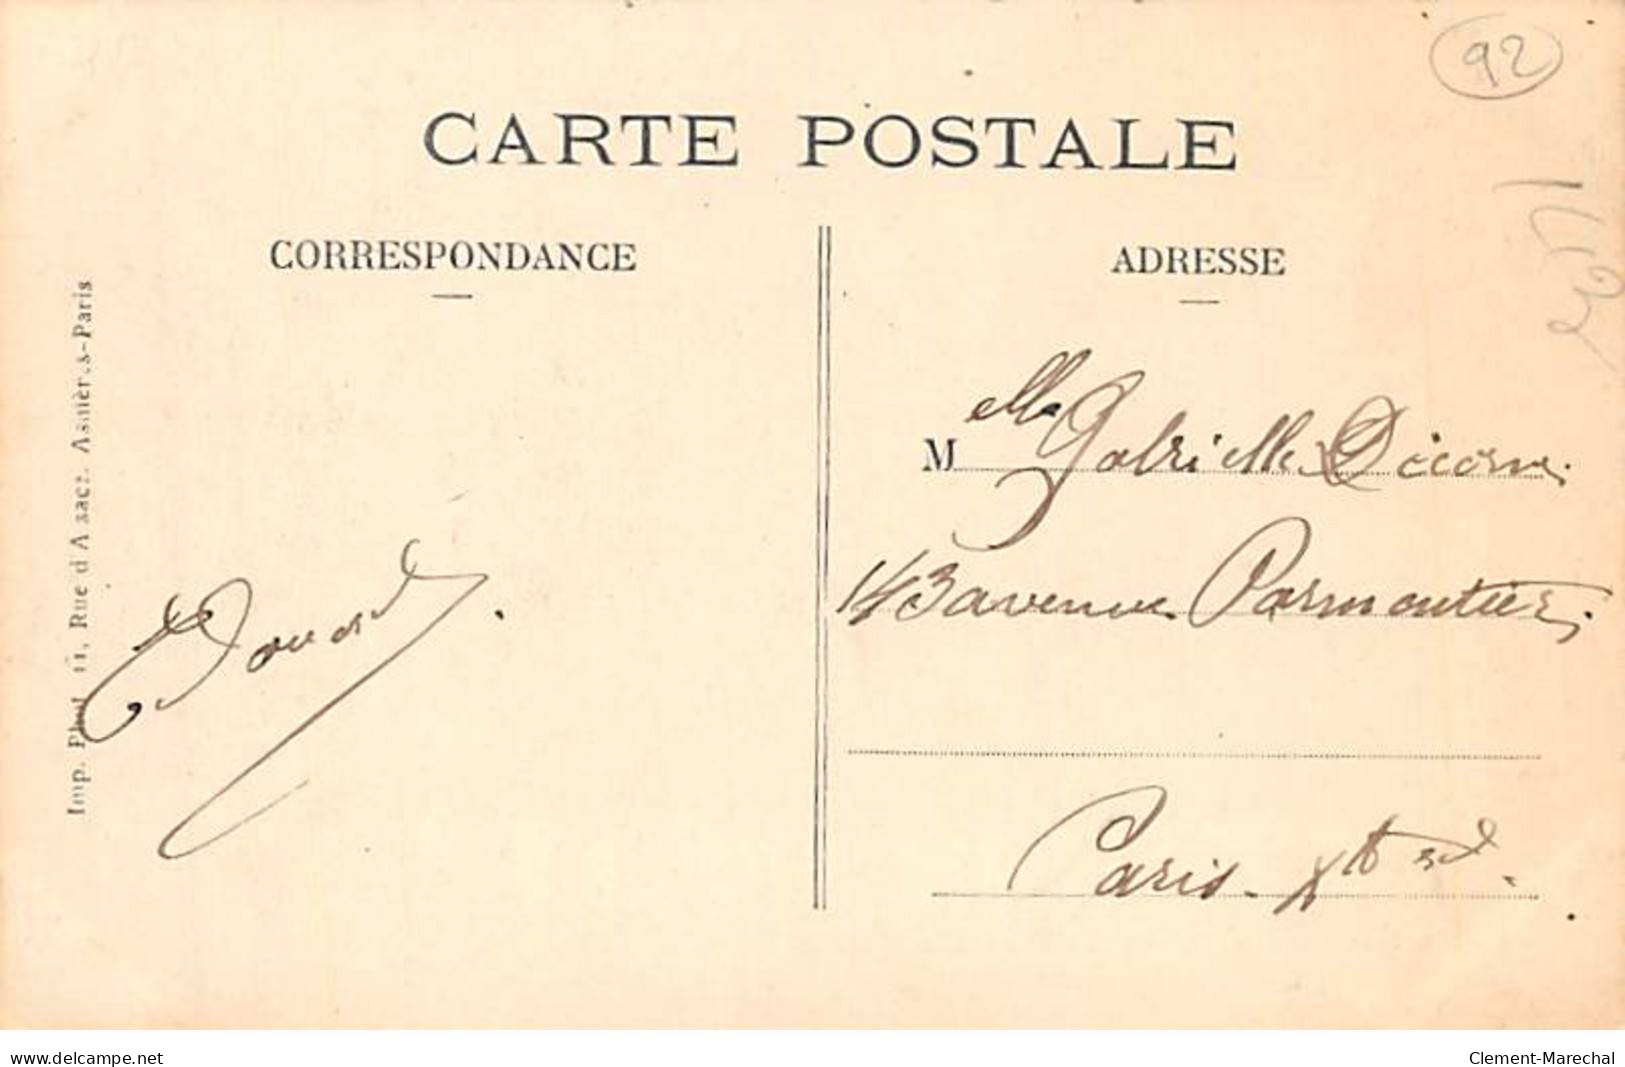 92
CARTE POSTALE
CORRESPONDANCE
ADRESSE
Imp. Phot. 11, Rue d'Alsace. Asnières-Paris
Melle Gabrielle
143 avenue Parmentier.
Edouard.
Paris. Xt
www.delcampe.net
Clement-Marechal